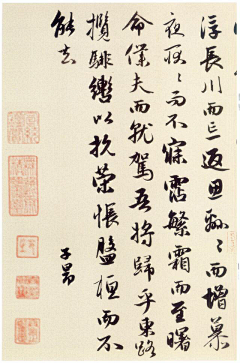 浮長川而忘返思綿〻而增慕
夜耿〻而不寐霑繁霜而至曙
命僕夫而就駕吾將歸乎東路
攬騑轡以抗策悵盤桓而不
能去
子昂